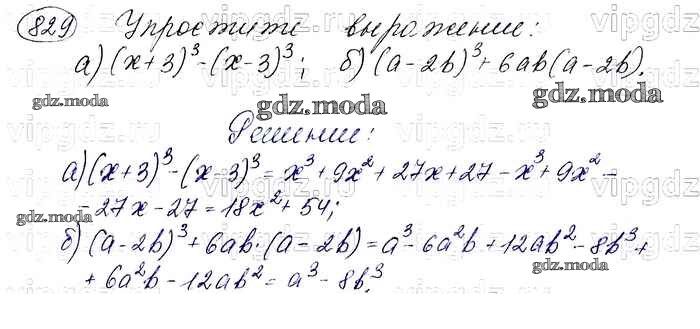 829 Упростите выражение:
а) (x+3)³-(x-3)³; б) (a-2b)³+6ab(a-2b).
gdz.moda
gdz.moda
gdz.moda
Решение:
а) (x+3)³-(x-3)³=x³+9x²+27x+27-x³+9x²-
-27x-27=18x²+54;
gdz.moda
б) (a-2b)³+6ab·(a-2b)=a³-6a²b+12ab²-8b³+
+6a²b-12ab²=a³-8b³.
gdz.moda
gdz.moda